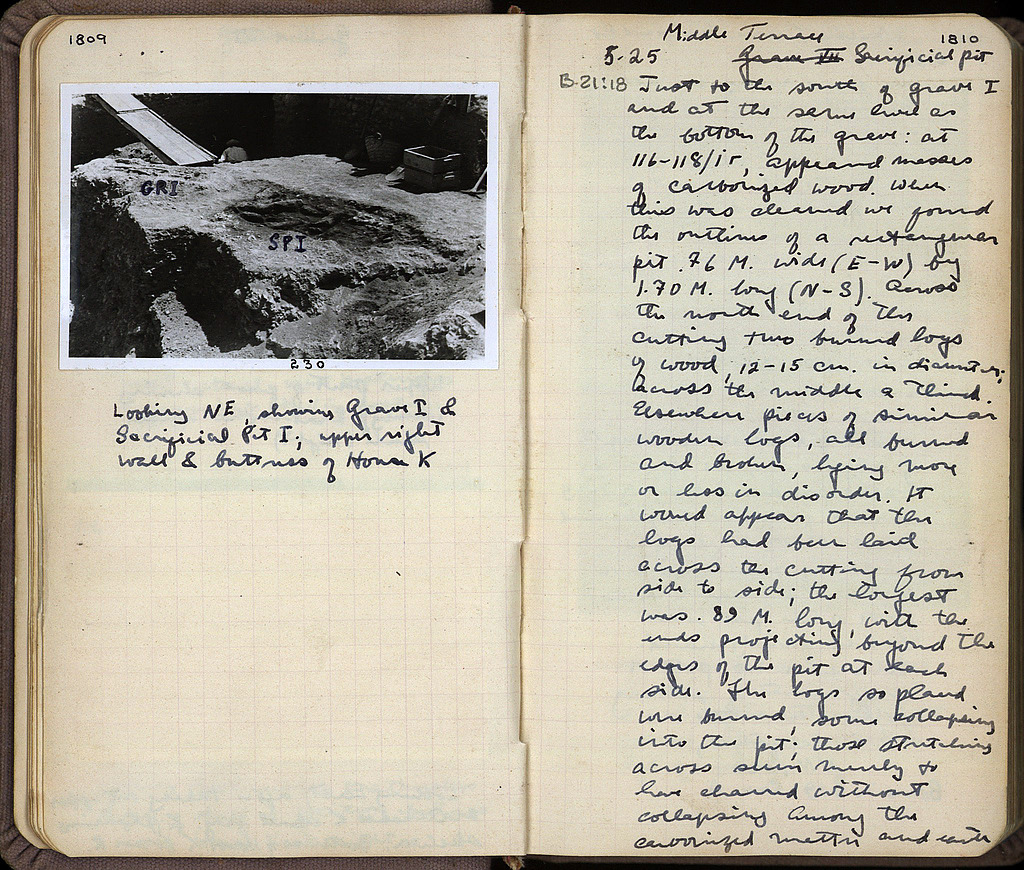 1809
GRI
SPI
230
Looking NE, showing Grave I &
Sacrificial Pit I; upper right
wall & buttress of House K
Middle Terrace
1810
5-25 Grave III Sacrificial pit
B-21:18 Just to the south of grave I
and at the same level as
the bottom of the grave: at
116-118/15, appeared masses
of carbonized wood. When
this was cleaned we found
the outlines of a rectangular
pit .76 M. wide (E-W) by
1.70 M. long (N-S). Across
the north end of this
cutting two burned logs
of wood, 12-15 cm. in diameter;
across the middle a third.
Elsewhere pieces of similar
wooden logs, all burned
and broken, lying more
or less in disorder. It
would appear that the
logs had been laid
across the cutting from
side to side; the longest
was .89 M. long, with the
ends projecting beyond the
edges of the pit at each
side. The logs so placed
were burned, some collapsing
into the pit; those stretching
across seem merely to
have charred without
collapsing. Among the
carbonized matter and earth